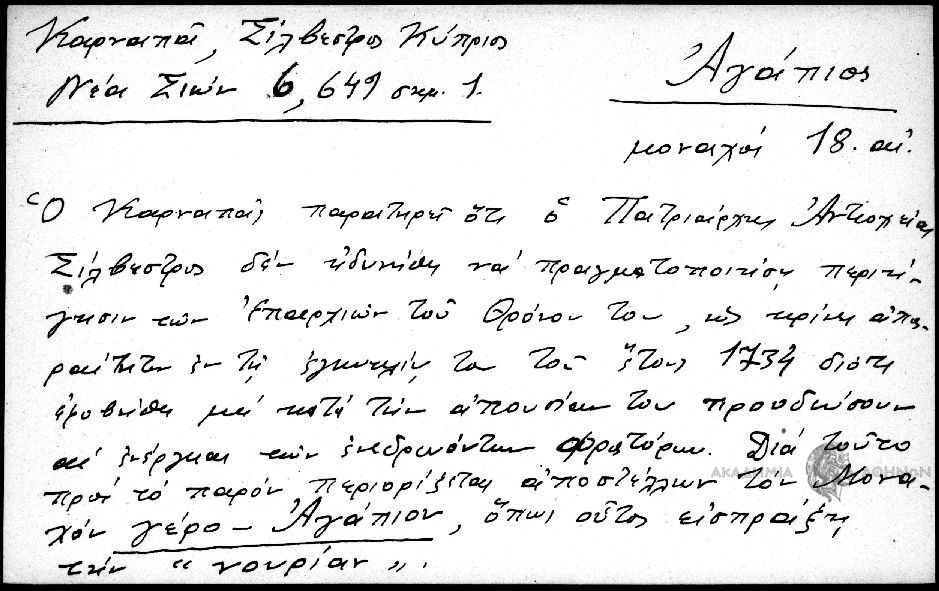 Καρναπᾶ, Σίλβεστρος Κύπριος
Νέα Σιών 6, 649 σημ. 1.
Ἀγάπιος
μοναχός 18. αἰ.
Ὁ Καρναπᾶς παρατηρεῖ ὅτι ὁ Πατριάρχης Ἀντιοχείας
Σίλβεστρος δέν ἠδυνήθη νά πραγματοποιήσῃ περιή-
γησιν τῶν Ἐπαρχιῶν τοῦ Θρόνου του, ὡς κρίνει ἀπα-
ραίτητον ἐν τῇ ἐγκυκλίῳ του τοῦ ἔτους 1734 διότι
ἐφοβήθη μή κατά τήν ἀπουσίαν του προοδεύσουν
αἱ ἐνέργειαι τῶν ἐνεδρευόντων Φρατόρων. Διά τοῦτο
πρός τό παρόν περιορίζεται ἀποστέλλων τόν Μονα-
χόν γέρο-Ἀγάπιον, ὅπως οὗτος εἰσπράξῃ
τήν "νουρίαν".
ΑΚΑΔΗΜΙΑ ΑΘΗΝΩΝ